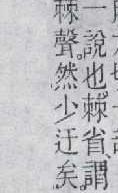 一說也。棘省謂
棘聲。然少迂矣。